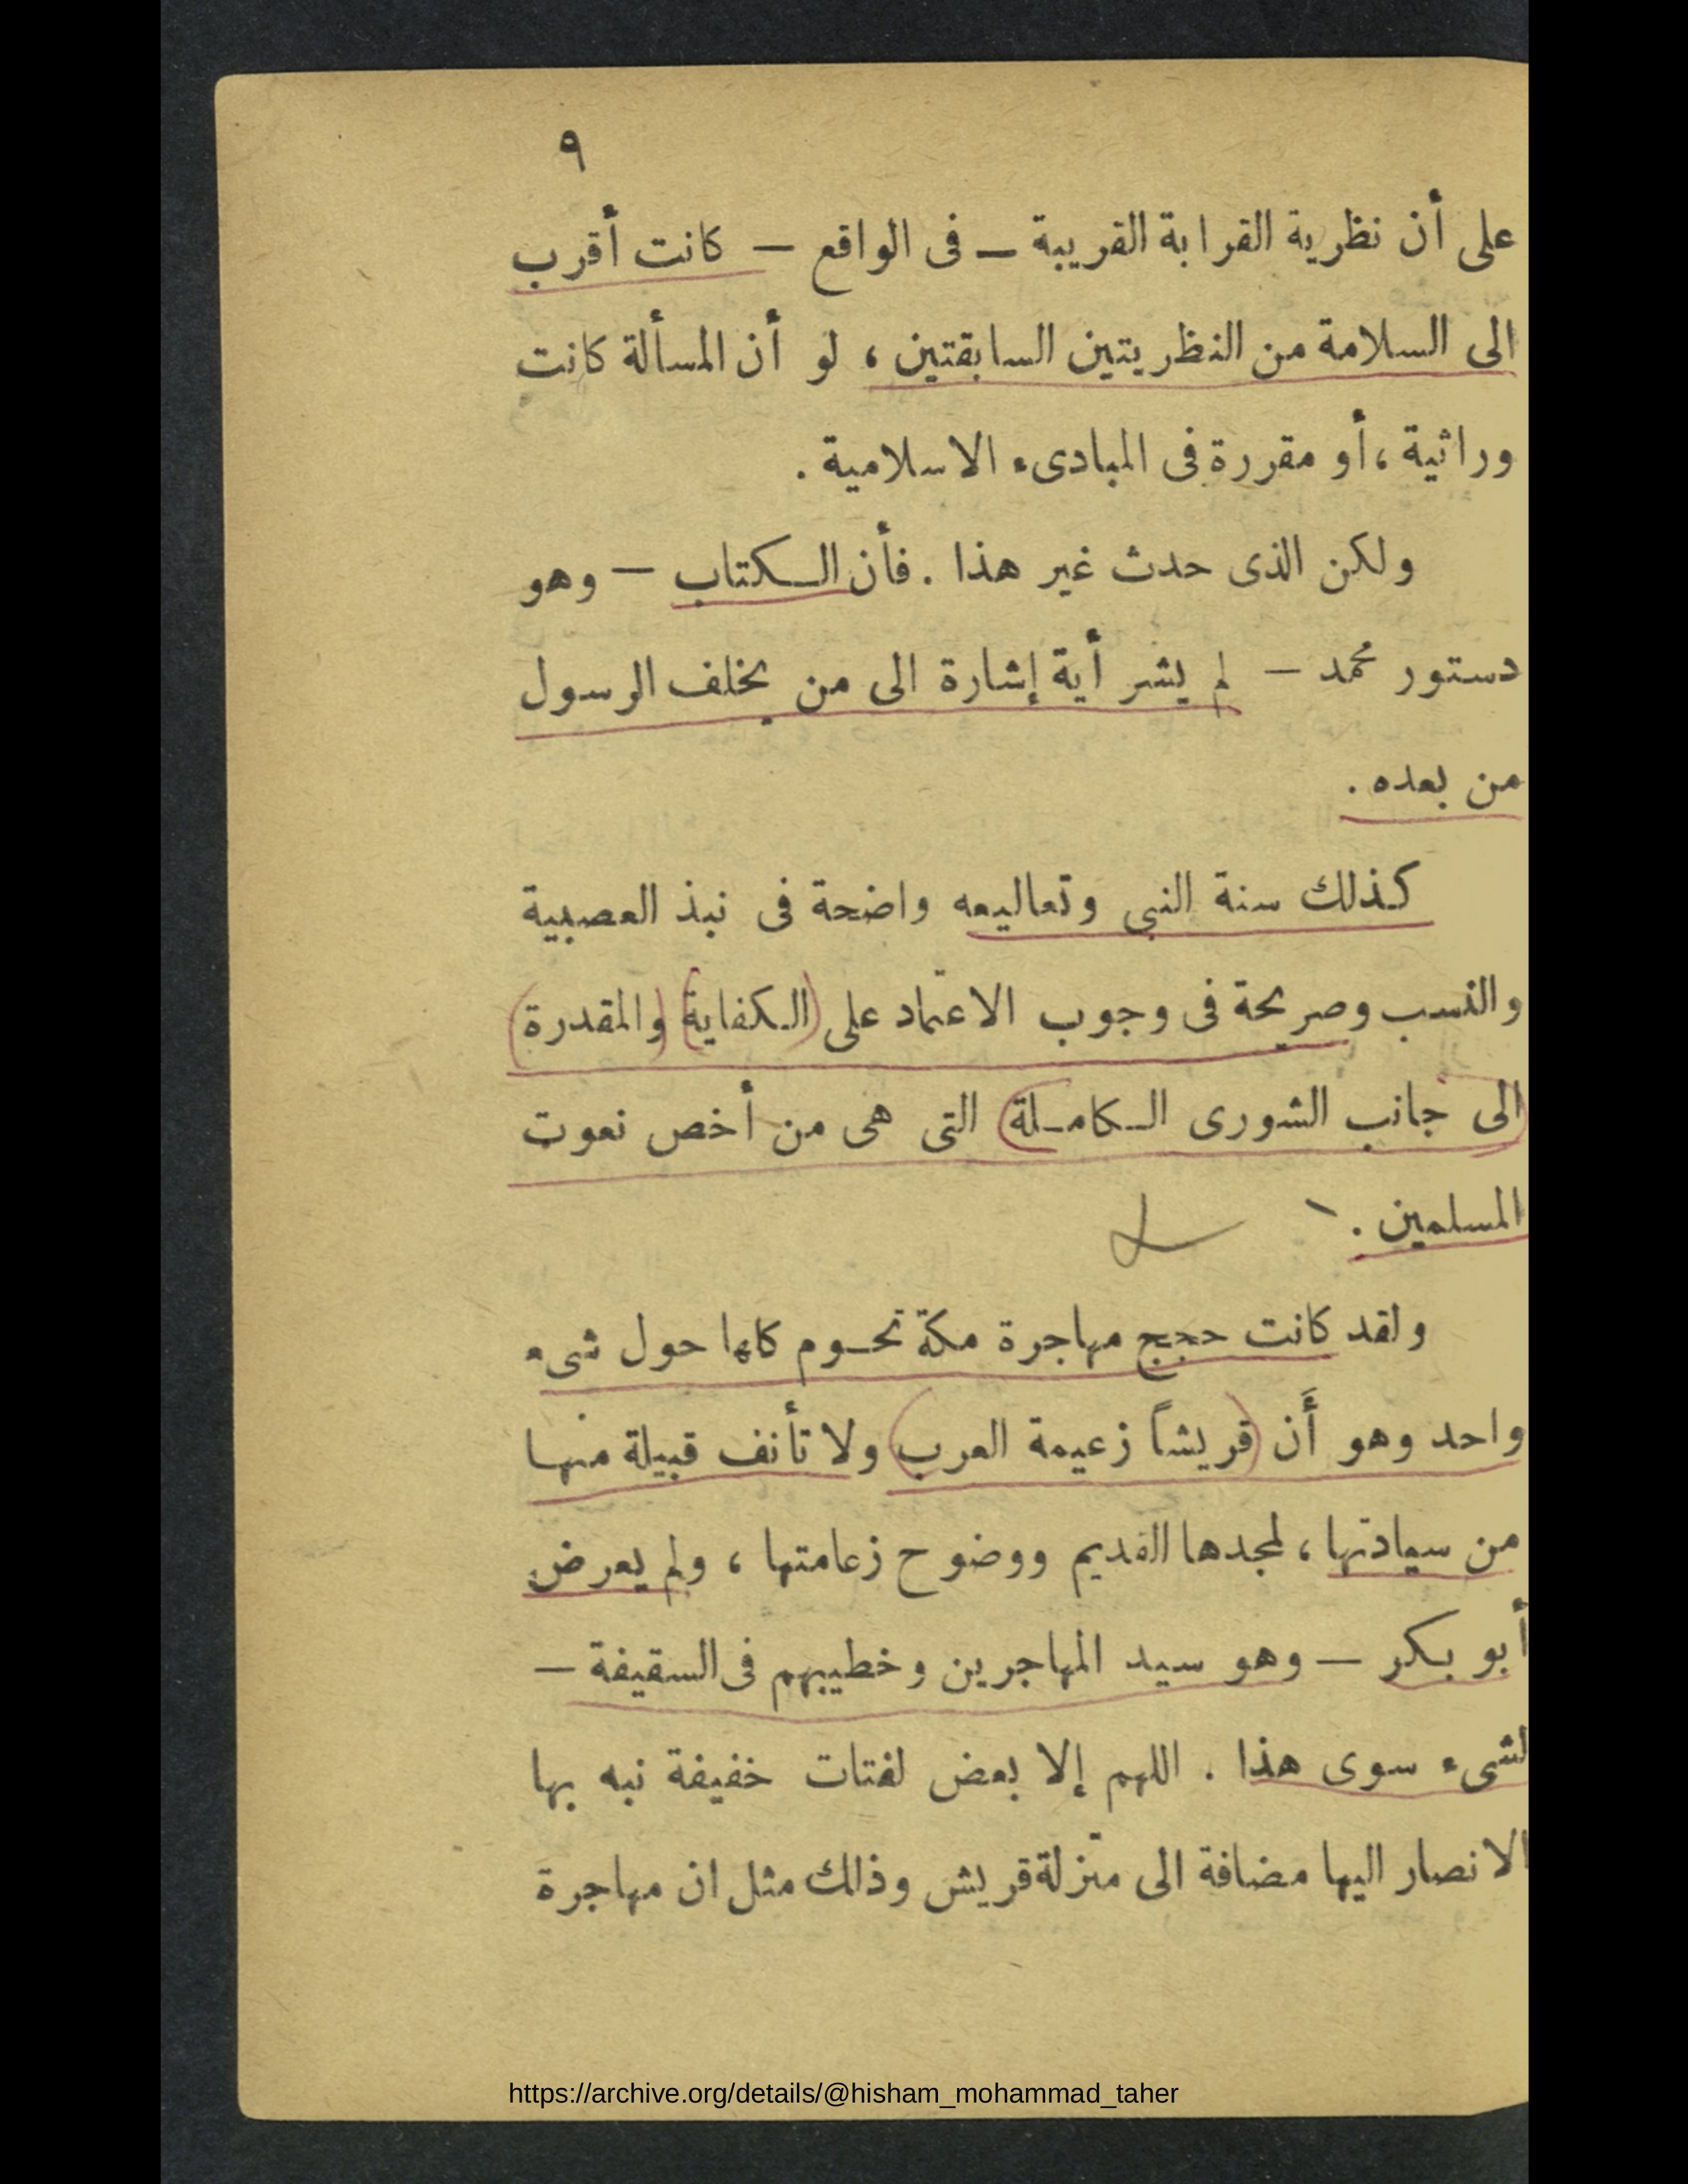 ٩
على أن نظرية القرابة القريبة – فى الواقع – كانت أقرب
الى السلامة من النظريتين السابقتين ، لو أن المسألة كانت
وراثية ، أو مقررة فى المبادىء الاسلامية .
ولكن الذى حدث غير هذا . فأن الكتاب – وهو
دستور محمد – لم يشر أية إشارة الى من يخلف الرسول
من بعده .
كذلك سنة النبى وتعاليمه واضحة فى نبذ العصبية
والنسب وصريحة فى وجوب الاعتماد على (الكفاية) (والمقدرة)
(الى جانب الشورى الكاملة) التى هى من أخص نعوت
المسلمين .
ولقد كانت حجج مهاجرة مكة تحوم كلها حول شىء
واحد وهو أَن (قريشاً زعيمة العرب) ولا تأنف قبيلة منها
من سيادتها ، لمجدها القديم ووضوح زعامتها ، ولم يعرض
أبو بكر – وهو سيد المهاجرين وخطيبهم فى السقيفة –
لشىء سوى هذا . اللهم إلا بعض لفتات خفيفة نبه بها
الانصار اليها مضافة الى منزلة قريش وذلك مثل ان مهاجرة
https://archive.org/details/@hisham_mohammad_taher